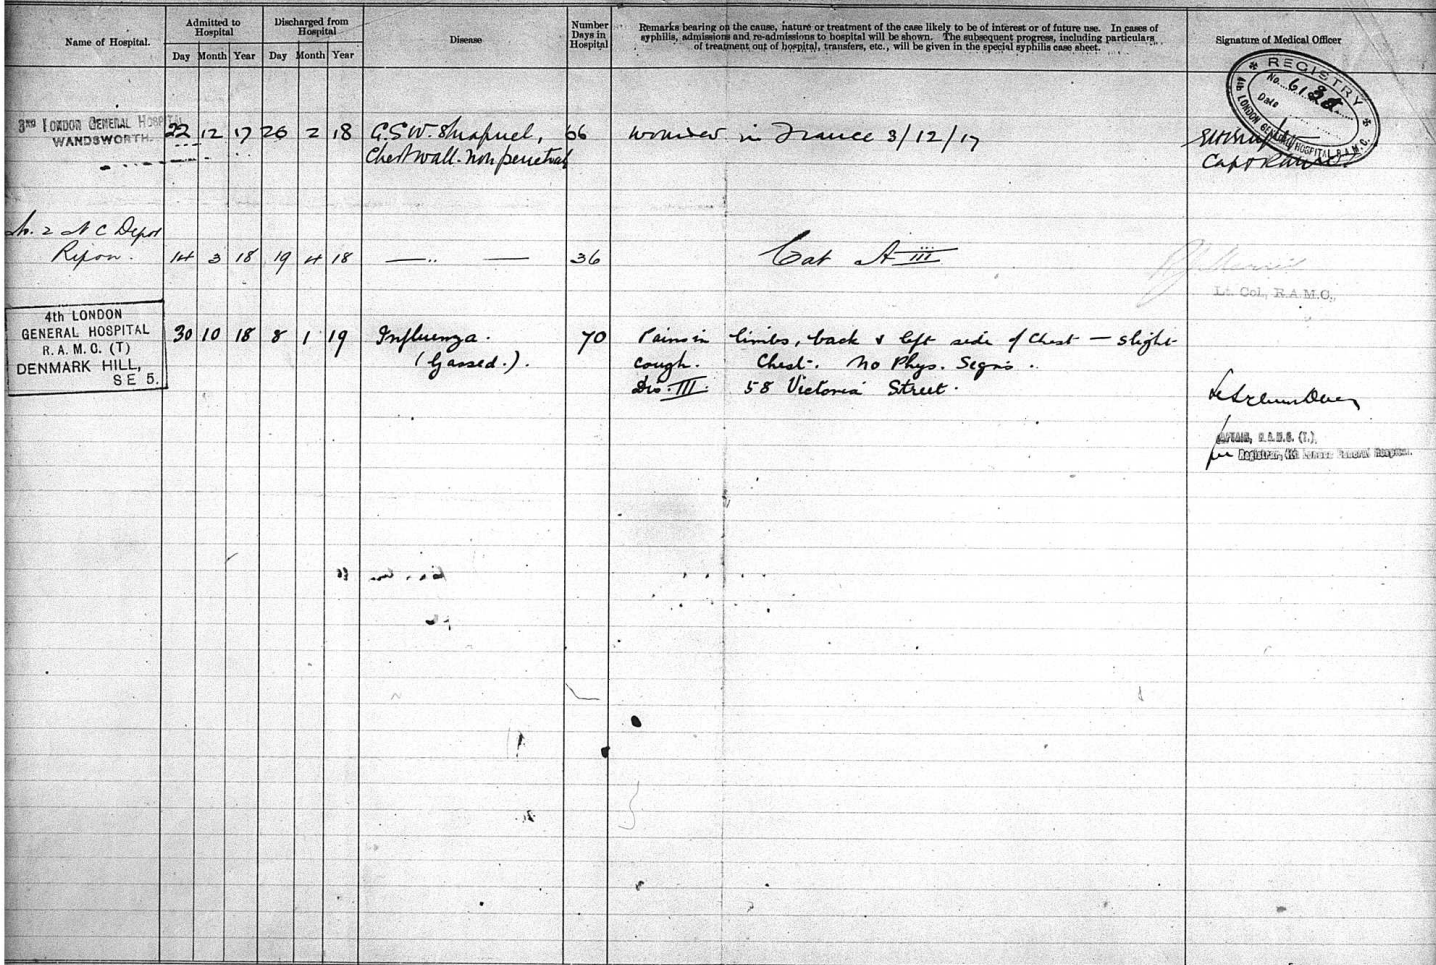 Name of Hospital.
Admitted to
Hospital
Day Month Year
Discharged from
Hospital
Day Month Year
Disease
Number
Days in
Hospital
Remarks bearing on the cause, nature or treatment of the case likely to be of interest or of future use. In cases of
syphilis, admissions and re-admissions to hospital will be shown. The subsequent progress, including particulars
of treatment out of hospital, transfers, etc., will be given in the special syphilis case sheet.
Signature of Medical Officer
REGISTRY
No. 6138
Date
4th LONDON GENERAL HOSPITAL R.A.M.C.
3RD LONDON GENERAL HOSPITAL
WANDSWORTH.
22 12 17 26 2 18 G.S.W. Shrapnel, 66 wounded in France 3/12/17
Chest wall. Non penetrat
Capt RAMC
No. 2 N C Depot
Ripon. 14 3 18 19 4 18 — " — 36 Cat A iii
Lt. Col., R.A.M.C.
4th LONDON
GENERAL HOSPITAL
R.A.M.C. (T)
DENMARK HILL,
S E 5.
30 10 18 8 1 19 Influenza. 70 Pains in limbs, back & left side of Chest — slight
(Gassed.). cough. Chest. No Phys. Signs.
Dis. III. 58 Victoria Street.
CAPTAIN, R.A.M.C. (T.)
for Registrar, 4th London General Hospital.